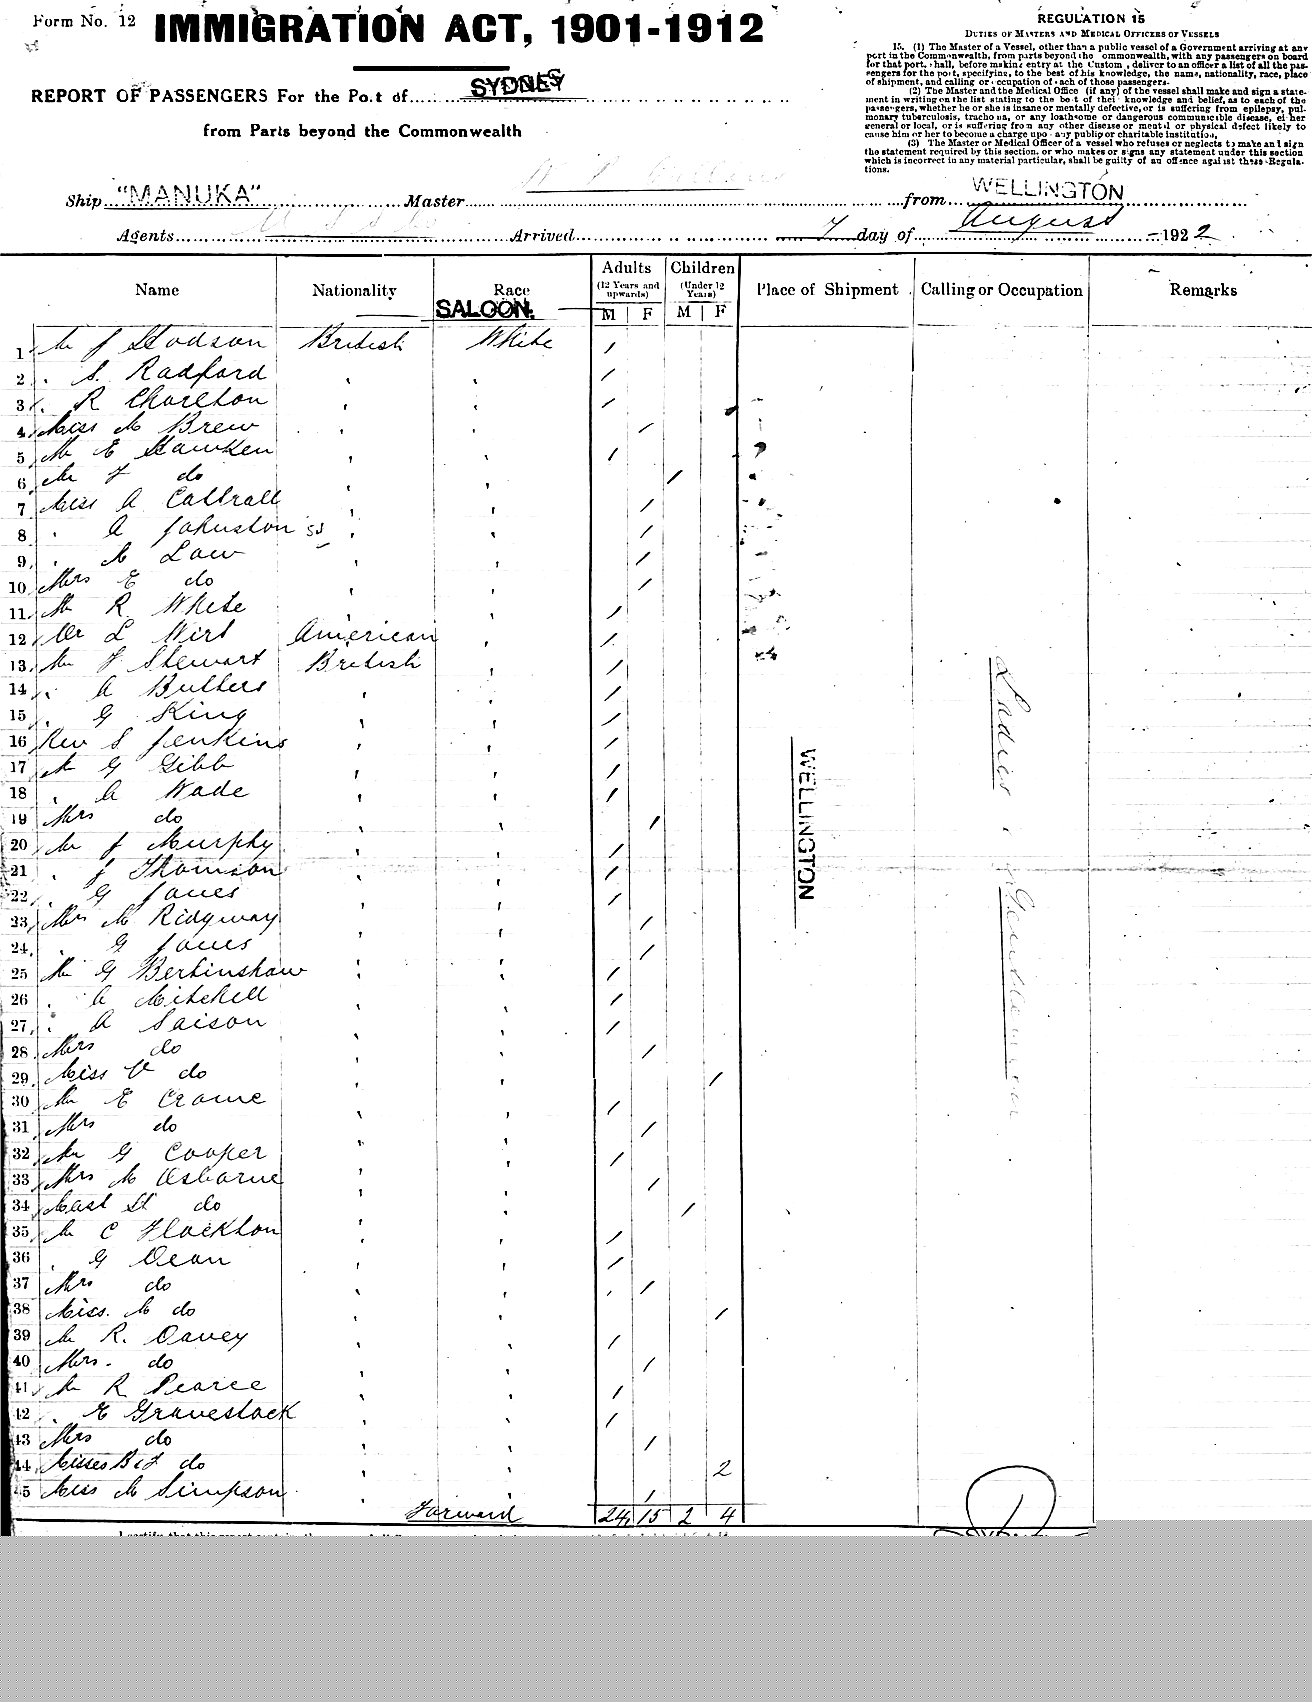 Form No. 12
IMMIGRATION ACT, 1901-1912
REPORT OF PASSENGERS For the Port of SYDNEY
from Parts beyond the Commonwealth
REGULATION 15
DUTIES OF MASTERS AND MEDICAL OFFICERS OF VESSELS
15. (1) The Master of a Vessel, other than a public vessel of a Government arriving at any
port in the Commonwealth, from parts beyond the Commonwealth, with any passengers on board
for that port, shall, before making entry at the Custom, deliver to an officer a list of all the pas-
sengers for the port, specifying, to the best of his knowledge, the name, nationality, race, place
of shipment, and calling or occupation of each of those passengers.
(2) The Master and the Medical Office (if any) of the vessel shall make and sign a state-
ment in writing on the list stating to the best of their knowledge and belief, as to each of the
passengers, whether he or she is insane or mentally defective, or is suffering from epilepsy, pul-
monary tuberculosis, trachoma, or any loathsome or dangerous communicable disease, either
general or local, or is suffering from any other disease or mental or physical defect likely to
cause him or her to become a charge upon any public or charitable institution.
(3) The Master or Medical Officer of a vessel who refuses or neglects to make and sign
the statement required by this section, or who makes or signs any statement under this section
which is incorrect in any material particular, shall be guilty of an offence against these Regula-
tions.
Ship "MANUKA" Master from WELLINGTON
Agents Arrived 7 day of August 1922
Name Nationality Race Adults (12 Years and upwards) M F Children (Under 12 Years) M F Place of Shipment Calling or Occupation Remarks
SALOON.
1 Mr J Hodson British White /
2 " S. Radford ' ' /
3 " R Charlton ' ' /
4 Miss M Brew ' ' /
5 Mr E Hawken ' ' /
6 Mr F do ' ' /
7 Miss A Cattrall ' ' /
8 " A Johnston 55 ' ' /
9 " M Law ' ' /
10 Mrs E do ' ' /
11 Mr R White ' ' /
12 Dr L Wirt American ' /
13 Mr F Stewart British ' /
14 " A Butters ' ' /
15 " G King ' ' /
16 Rev S Jenkins ' ' /
17 Mr G Gibb ' ' /
18 " A Wade ' ' /
19 Mrs do ' ' /
20 Mr J Murphy ' ' /
21 " J Thomson ' ' /
22 " G Jones ' ' /
23 Mrs M Ridgway ' ' /
24 " G Jones ' ' /
25 Mr G Bertinshaw ' ' /
26 " A Mitchell ' ' /
27 " A Saison ' ' /
28 Mrs do ' ' /
29 Miss V do ' ' /
30 Mr E Crowe ' ' /
31 Mrs do ' ' /
32 Mr G Cooper ' ' /
33 Mrs M Osborne ' ' /
34 Mast H do ' ' /
35 Mr C Flockton ' ' /
36 " G Dean ' ' /
37 Mrs do ' ' /
38 Miss. M do ' ' /
39 Mr R. Davey ' ' /
40 Mrs. do ' ' /
41 Mr R Pearce ' ' /
42 " E Gravestock ' ' /
43 Mrs do ' ' /
44 Misses B & F do ' ' 2
45 Miss M Simpson ' ' /
WELLINGTON
Ladies & Gentlemen
Forward 24 15 2 4